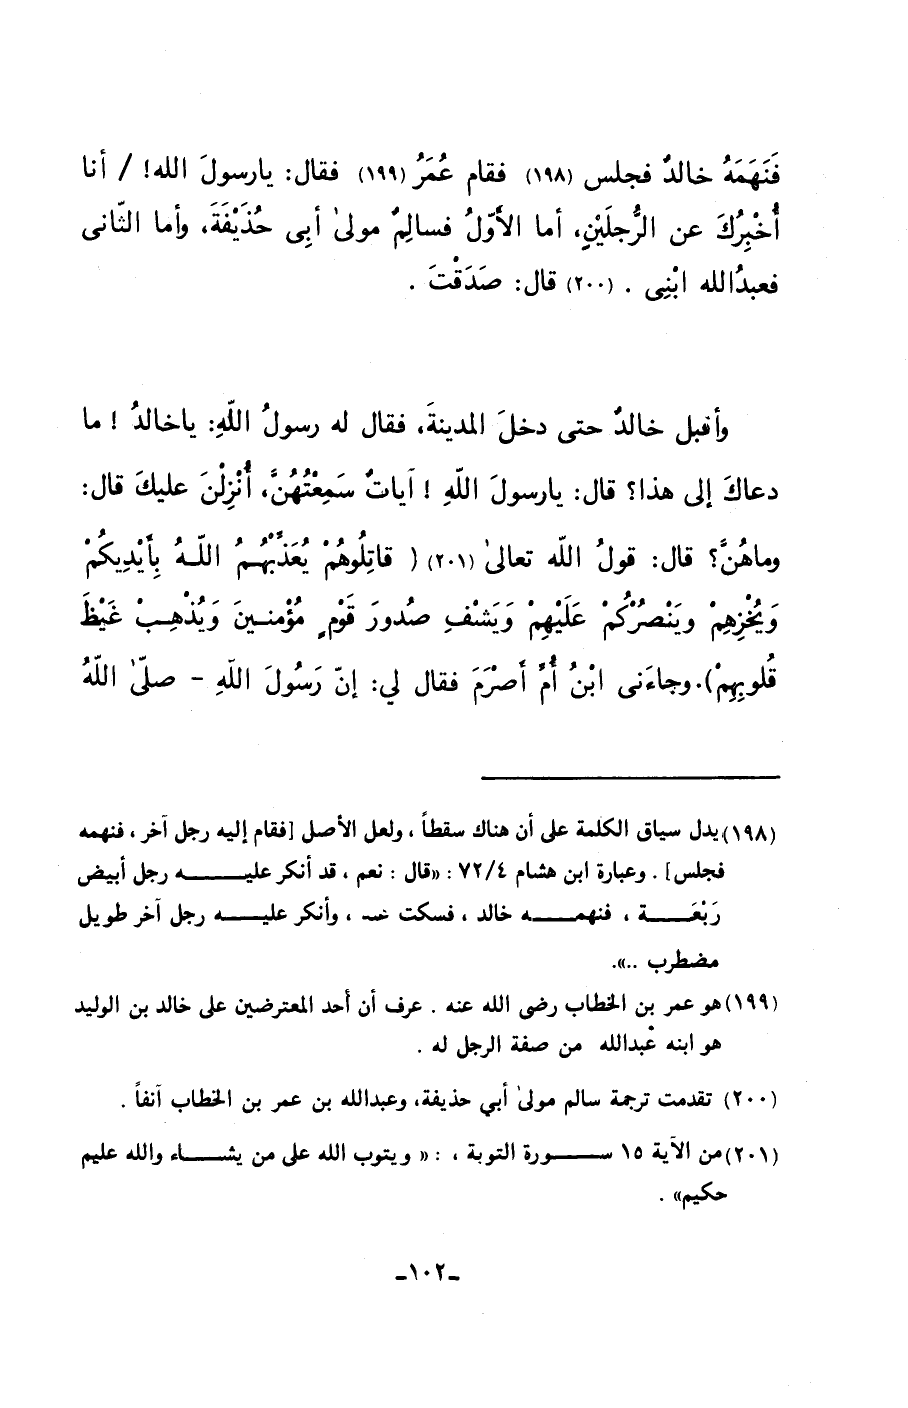 فَنَهَمَهُ خالدٌ فجلس (١٩٨) فقام عُمَرُ (١٩٩) فقال: يارسولَ الله! / أنا
أُخْبِرُكَ عن الرُّجلَيْنِ، أما الأوّلُ فسالِمٌ مولىٰ أبِى حُذَيْفَةَ، وأما الثّانى
فعبدُالله ابْنِى . (٢٠٠) قال: صَدَقْتَ .
وأقبل خالدٌ حتى دخلَ المدينةَ، فقال له رسولُ اللّهِ: ياخالدُ ! ما
دعاكَ إلى هذا؟ قال: يارسولَ اللّهِ ! آياتٌ سَمِعْتُهُنَّ، أُنْزِلْنَ عليكَ قال:
وماهُنَّ؟ قال: قولُ اللّه تعالىٰ (٢٠١) ( قاتِلُوهُمْ يُعَذِّبْهُـمُ اللّـهُ بِأَيْدِيكُمْ
وَيُخْزِهِمْ ويَنْصُرْكُمْ عَلَيْهِمْ وَيَشْفِ صُدورَ قَوْمٍ مُؤْمنـينَ وَيُذْهِـبْ غَيْظَ
قُلوبِهِمْ). وجاءَنى ابْنُ أُمِّ أَصْرَمَ فقال لي: إنّ رَسُولَ اللَهِ - صلّىٰ اللّهُ
(١٩٨) يدل سياق الكلمة على أن هناك سقطاً ، ولعل الأصل [فقام إليه رجل آخر ، فنهمه
فجلس] . وعبارة ابن هشام ٧٢/٤ : «قال : نعم ، قد أنكر عليـــــه رجل أبيض
رَبْعَـــــة ، فنهمـــــه خالد ، فسكت عنه ، وأنكر عليـــــه رجل آخر طويل
مضطرب ..».
(١٩٩) هو عمر بن الخطاب رضى الله عنه . عرف أن أحد المعترضين على خالد بن الوليد
هو ابنه عْبدالله من صفة الرجل له .
(٢٠٠) تقدمت ترجمة سالم مولىٰ أبي حذيفة، وعبدالله بن عمر بن الخطاب آنفاً .
(٢٠١) من الآية ١٥ ســـــورة التوبة ، : « ويتوب الله على من يشـــــاء والله عليم
حكيم» .
ـ١٠٢ـ